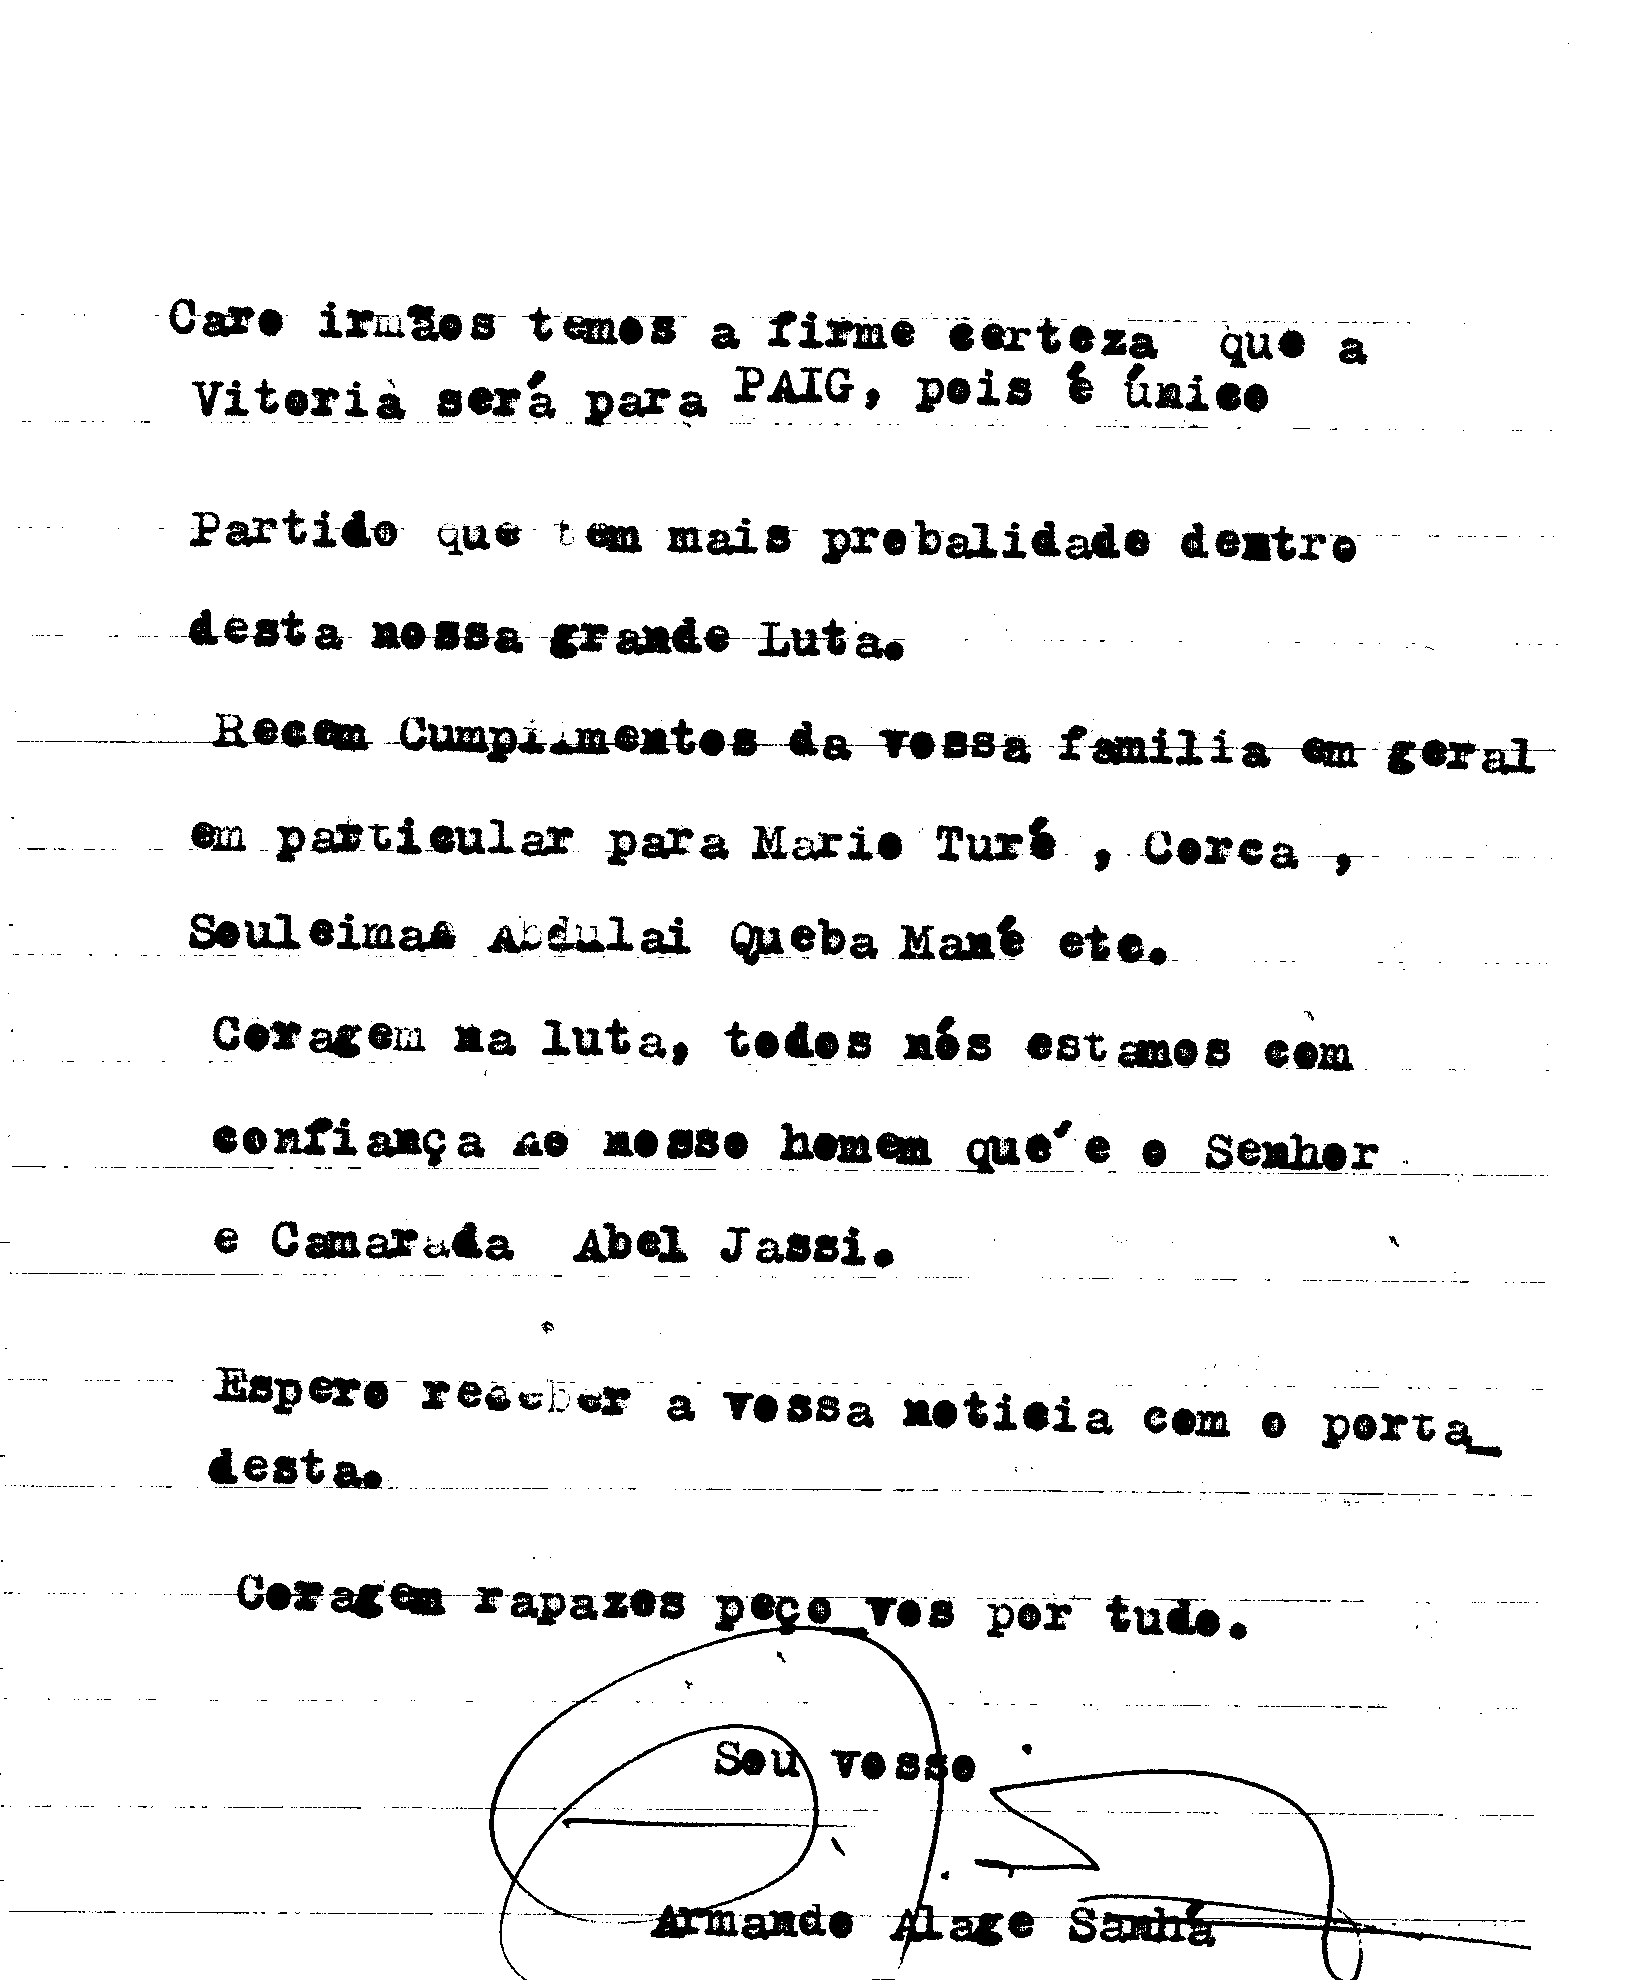 Caro irmãos temos a firme certeza que a
Vitoria será para PAIG, pois é único
Partido que tem mais probalidade dentro
desta nossa grande Luta.
Recem Cumprimentos da vossa familia em geral
em particular para Mario Turé , Corca ,
Souleimae Abdulai Queba Mané etc.
Coragem na luta, todos nós estamos com
confiança no nosso homem que´e o Senhor
e Camarada Abel Jassi.
Espero receber a vossa noticia com o porta_
desta.
Coragem rapazes peço_vos por tudo.
Sou vosso
Armando Alage Sanhá